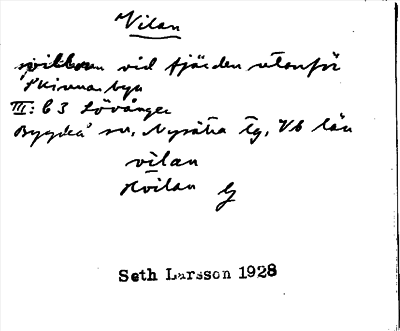 Vilan
vid fjärden utanför
Skinnarbyn
III: C3 Lövånger
Bygdeå sn, Nysätra tg, Vb län
vilan
Hvilan
Seth Larsson 1928